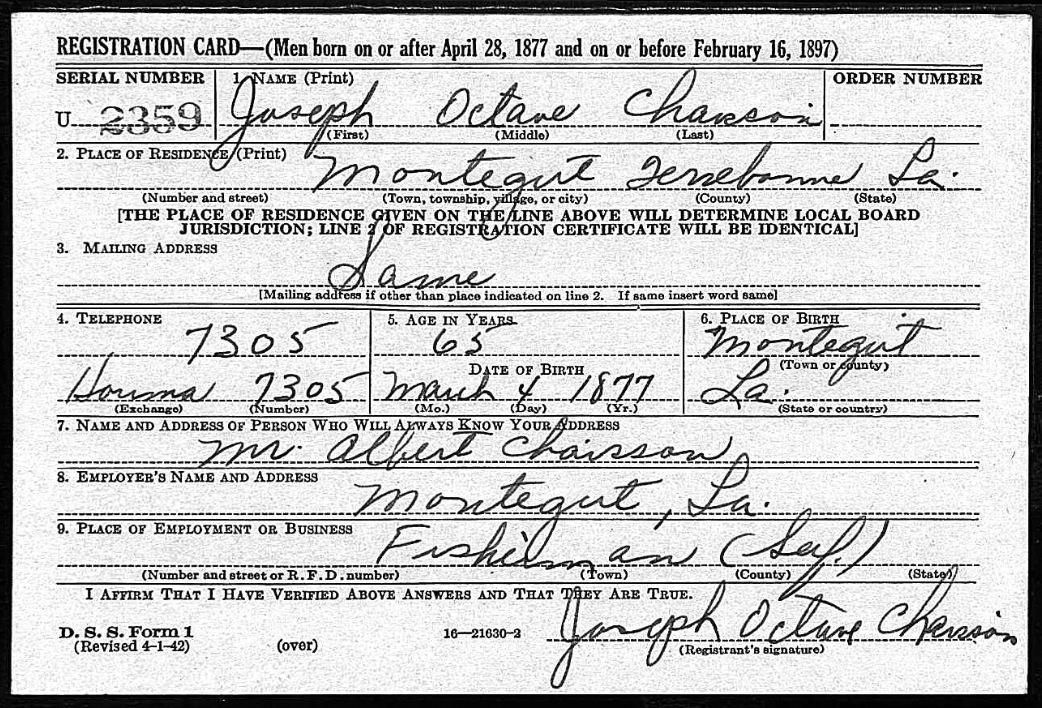 REGISTRATION CARD—(Men born on or after April 28, 1877 and on or before February 16, 1897)
SERIAL NUMBER 1. NAME (Print) ORDER NUMBER
U 2359 Joseph Octave Chaisson
(First) (Middle) (Last)
2. PLACE OF RESIDENCE (Print)
Montegut Terrebonne La.
(Number and street) (Town, township, village, or city) (County) (State)
[THE PLACE OF RESIDENCE GIVEN ON THE LINE ABOVE WILL DETERMINE LOCAL BOARD
JURISDICTION; LINE 2 OF REGISTRATION CERTIFICATE WILL BE IDENTICAL]
3. MAILING ADDRESS
Same
[Mailing address if other than place indicated on line 2. If same insert word same]
4. TELEPHONE 5. AGE IN YEARS 6. PLACE OF BIRTH
7305 65 Montegut
DATE OF BIRTH (Town or county)
Houma 7305 March 4 1877 La.
(Exchange) (Number) (Mo.) (Day) (Yr.) (State or country)
7. NAME AND ADDRESS OF PERSON WHO WILL ALWAYS KNOW YOUR ADDRESS
Mr. Albert Chaisson
8. EMPLOYER'S NAME AND ADDRESS
Montegut, La.
9. PLACE OF EMPLOYMENT OR BUSINESS
Fisherman (Self.)
(Number and street or R. F. D. number) (Town) (County) (State)
I AFFIRM THAT I HAVE VERIFIED ABOVE ANSWERS AND THAT THEY ARE TRUE.
D. S. S. Form 1 16—21630-2 Joseph Octave Chaisson
(Revised 4-1-42) (over) (Registrant's signature)